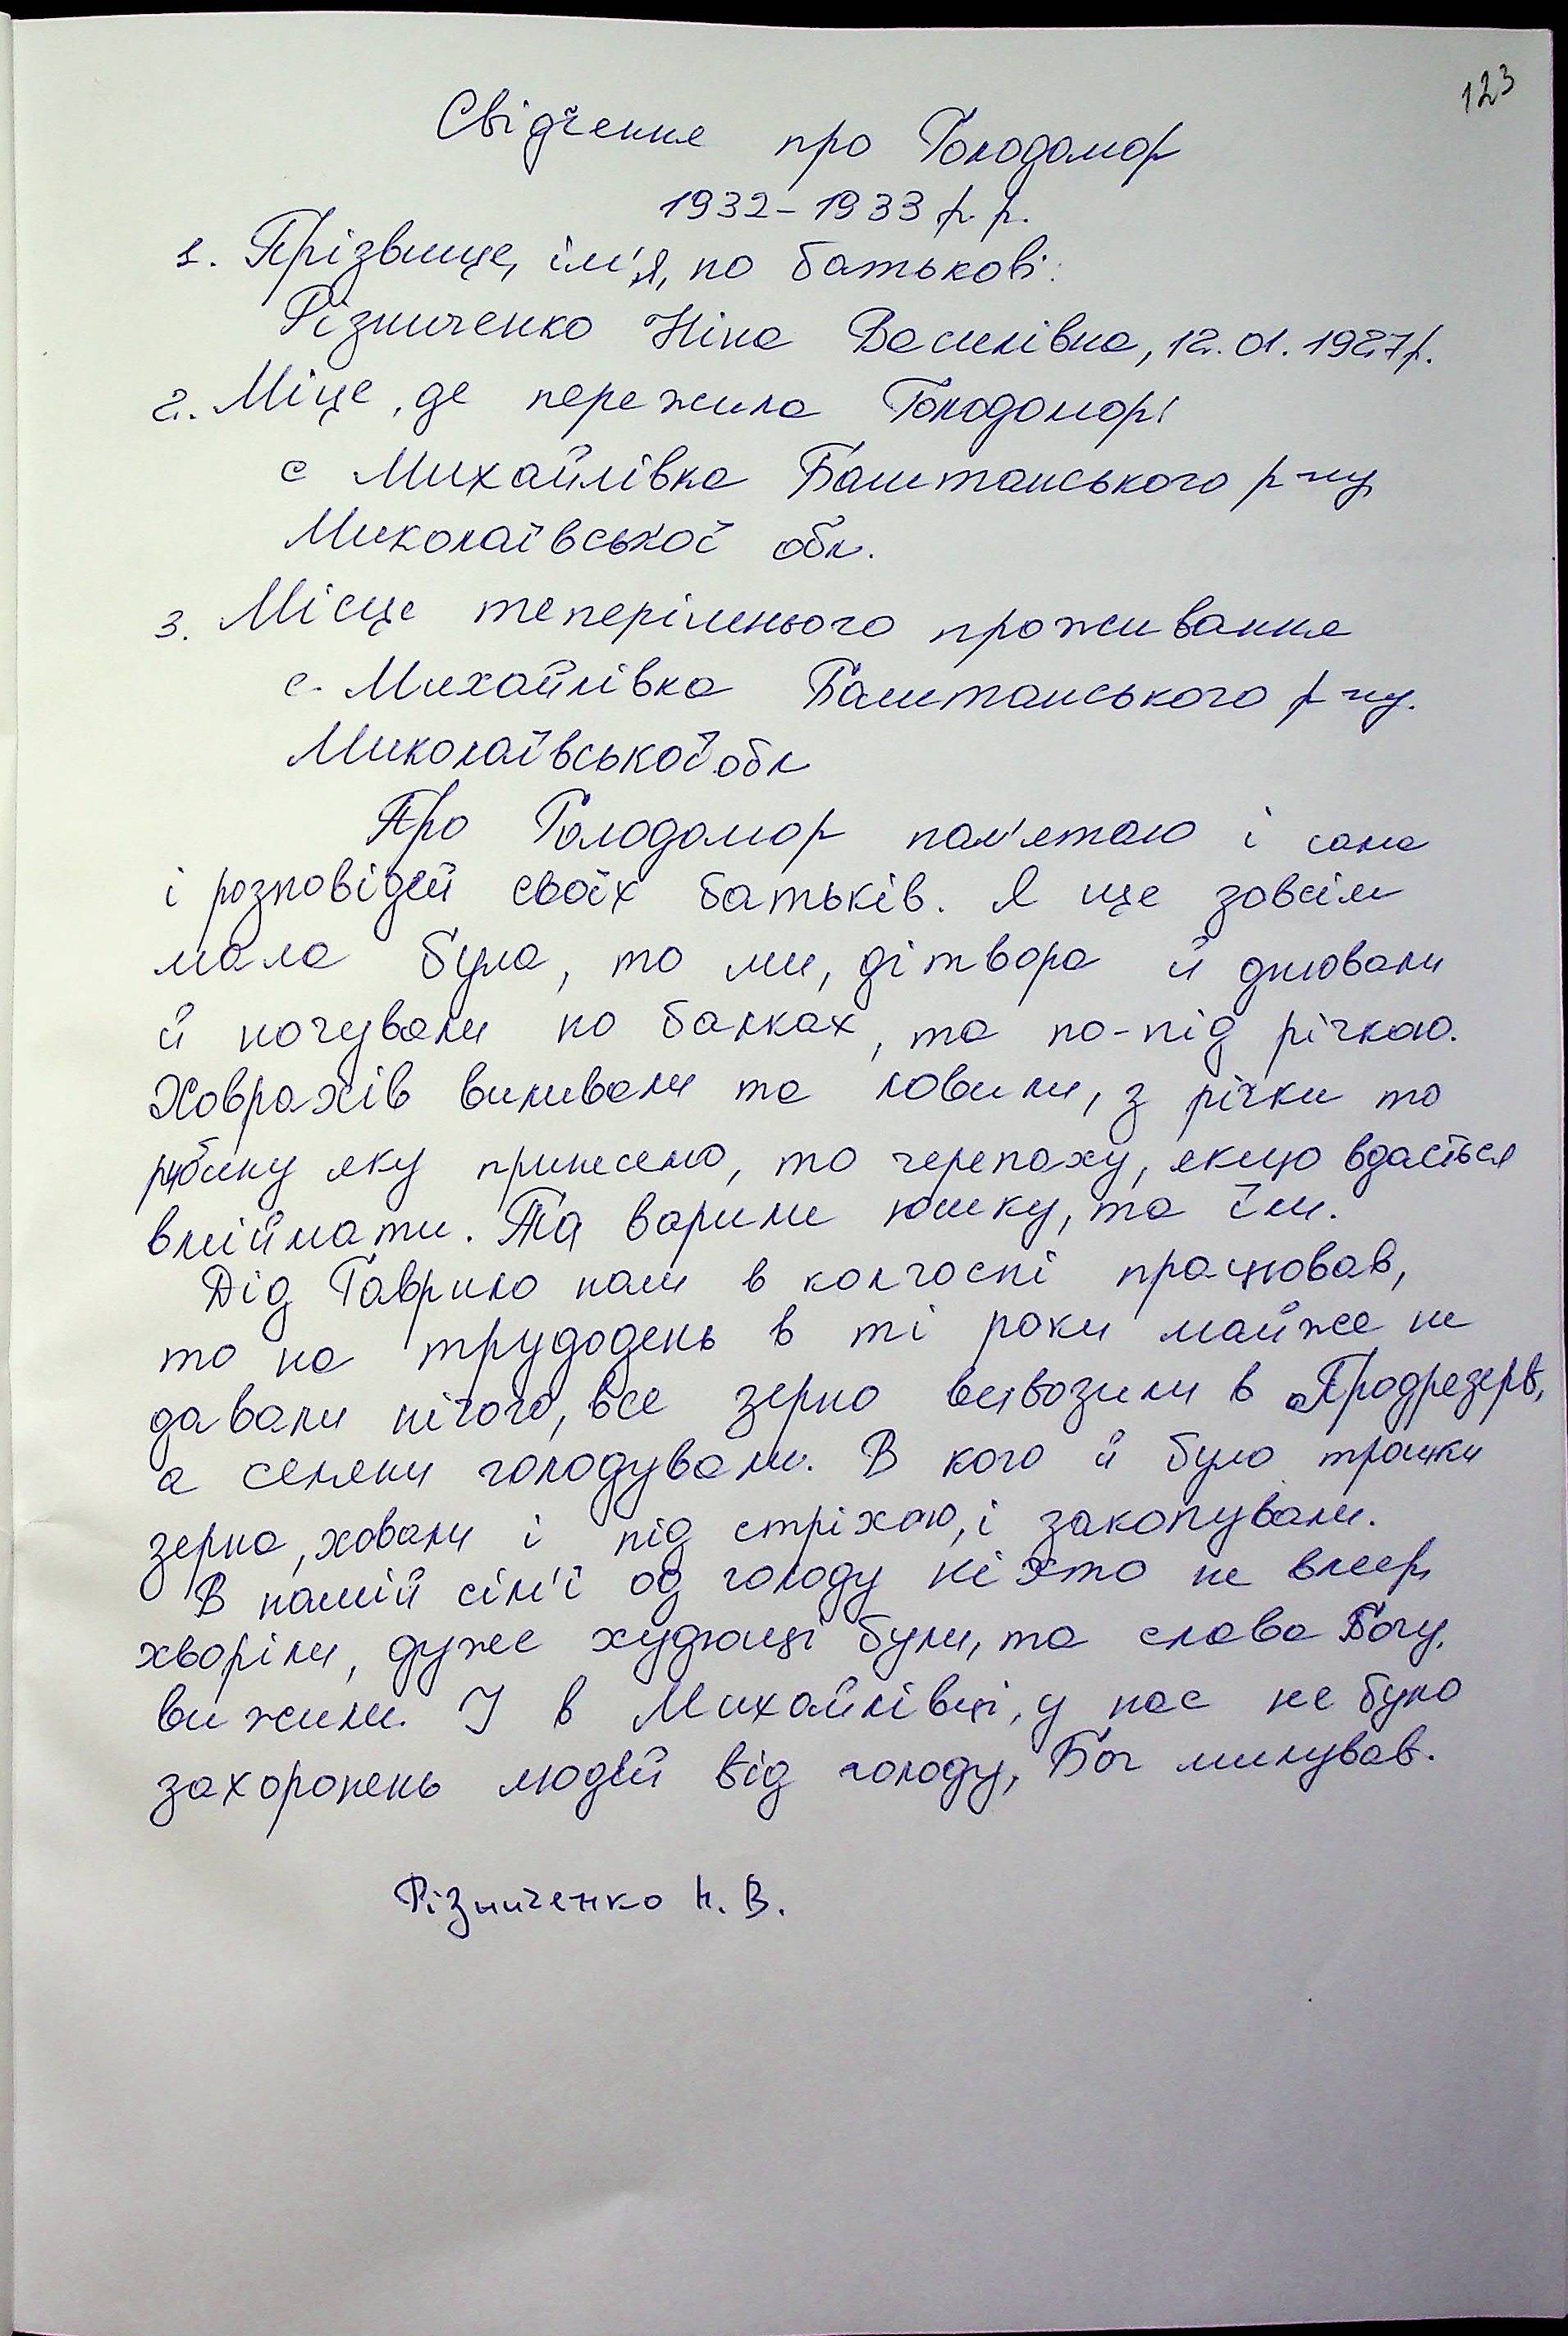 123
Свідчення про Голодомор
1932-1933 р.р.
1. Прізвище, ім'я, по батькові:
Різниченко Ніна Василівна, 12.01.1927р.
2. Міце, де пережила Голодомор:
с Михайлівка Баштанського р-ну
Миколаївської обл.
3. Місце теперішнього проживання
с. Михайлівка Баштанського р-ну.
Миколаївської обл
Про Голодомор пам'ятаю і сама
і розповідей своїх батьків. Я ще зовсім
мала була, то ми, дітвора й днювали
й ночували по балках, та по-під річкою.
Ховрахів виливали та ловили, з річки то
рибину яку принесемо, то черепаху, якщо вдасться
вміймати. Та варили юшку, та їли.
Дід Гаврило наш в колгоспі працював,
то на трудодень в ті роки майже не
давали нічого, все зерно вивозили в „Продрезерв,
а селяни голодували. В кого й було трошки
зерна, ховали і під стріхою, і закопували.
В нашій сім'ї од голоду ніхто не вмер,
хворіли, дуже худющі були, та слава Богу,
вижили. І в Михайлівці, у нас не було
захоронень людей від голоду, Бог милував.
Різниченко Н. В.